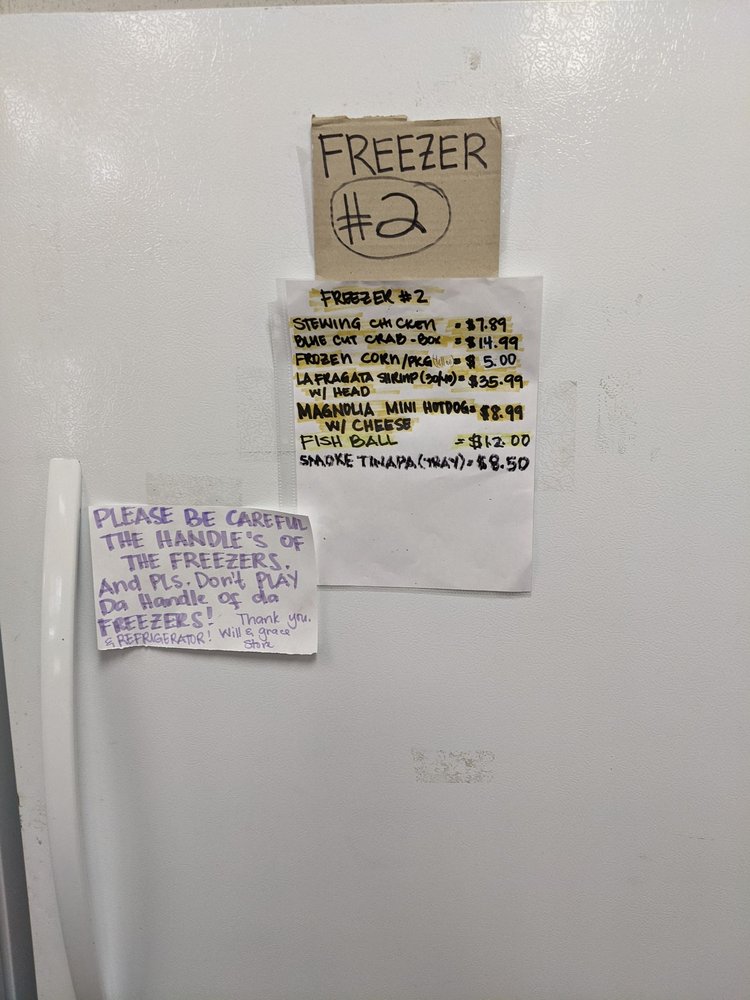 FREEZER
#2
FREEZER #2
STEWING CHICKEN = $7.89
BLUE CUT CRAB-BOX = $14.99
FROZEN CORN/PKG = $ 5.00
LA FRAGATA SHRIMP (30/40) = $35.99
W/ HEAD
MAGNOLIA MINI HOTDOG = $8.99
W/ CHEESE
FISH BALL = $12.00
SMOKE TINAPA (TRAY) = $8.50
PLEASE BE CAREFUL
THE HANDLE'S OF
THE FREEZERS.
And PLS. Don't PLAY
Da Handle of da
FREEZERS! Thank you.
& REFRIGERATOR! Will & grace
Store